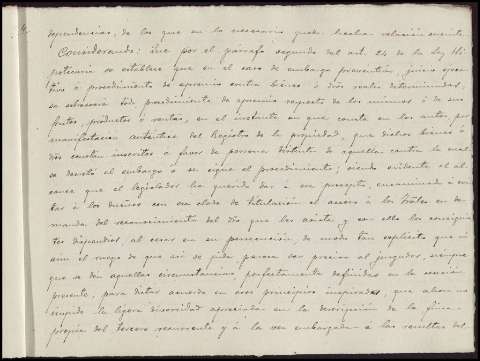 dependencias, de los que en lo necesario queda hecha relación sucinta
Considerando: Que por el párrafo segundo del art. 24 de la ley Hi-
potecaria se establece que en el caso de embargo preventivo, juicio ejecu-
tivo ó procedimiento de apremio contra bienes ó dros reales determinados,
se sobreseerá todo procedimiento de apremio respecto de los mismos ó de sus
frutos, productos ó rentas, en el instante en que conste en los autos, por
manifestación auténtica del Registro de la propiedad, que dichos bienes ó
dros constan inscritos á favor de persona distinta de aquella contra la cual
se decretó el embargo ó se sigue el procedimiento; siendo evidente el al-
cance que el legislador ha querido dar á ese precepto, encaminado á evi-
tar á los dueños con esa clase de titulación el acceso á los trates en de-
manda del reconocimiento del dro que les asiste y con ello los consiguien-
tes dispendios, al cesar en su persecución, de modo tan explícito que ni
aun el ruego de que así se pida parece ser preciso al juzgador, siempre
que se den aquellas circunstancias perfectamente definidas en la ocasión
presente, para dictar acuerdo en esos principios inspirados, que ahora no
impide la ligera diversidad apreciada en la descripción de la finca
propia del tercero recurrente y á la vez embargada á las resultas del